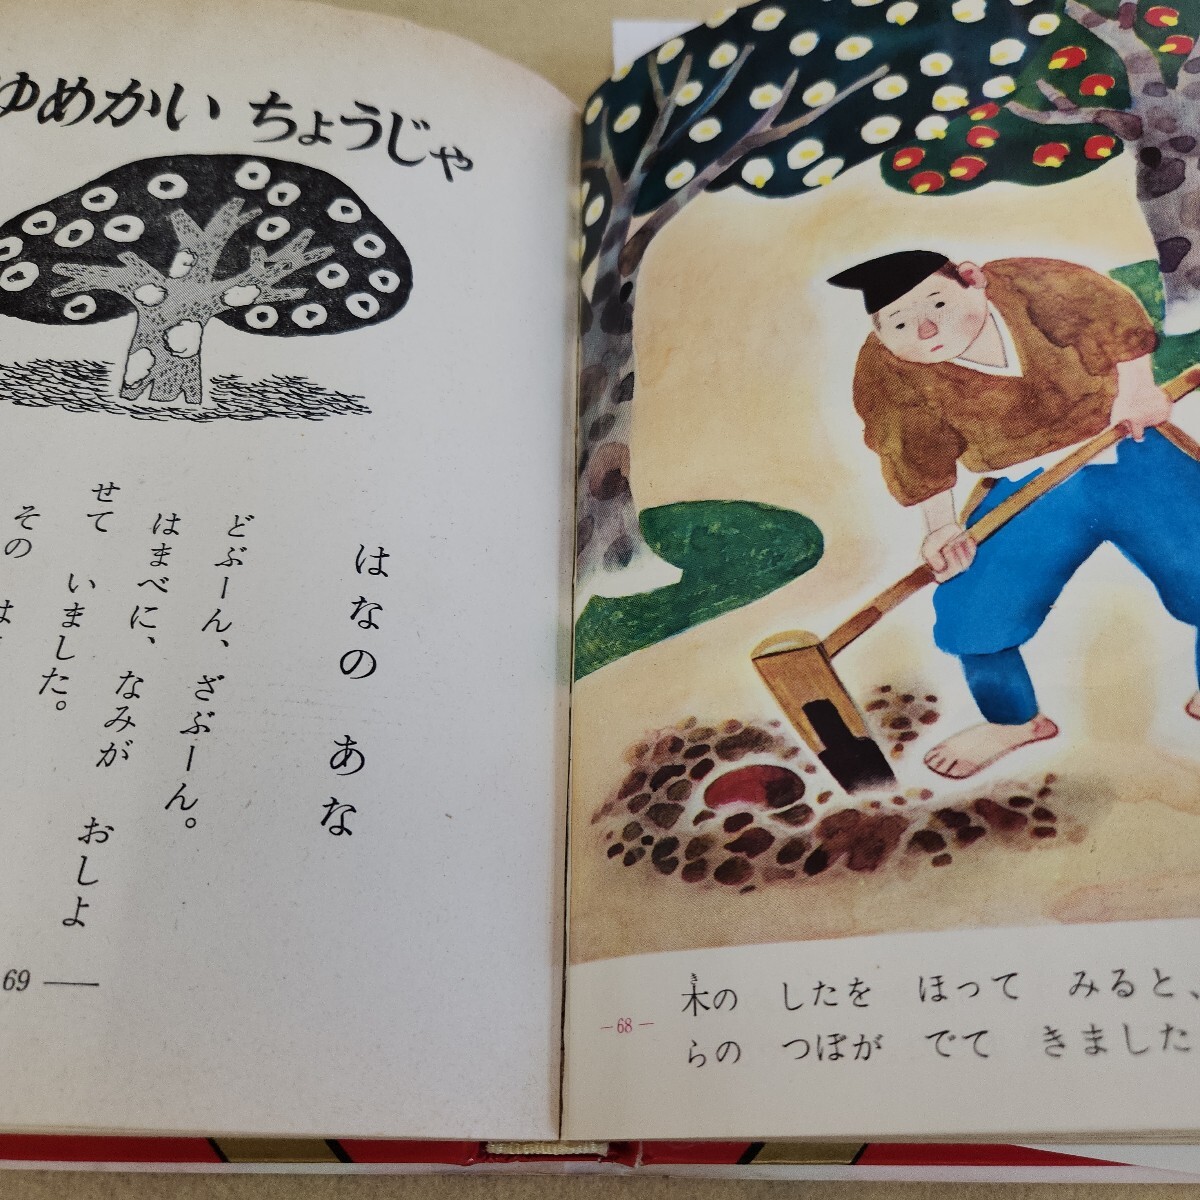 ゆめかい ちょうじゃ
はなの あな
どぶーん、ざぶーん。
はまべに、なみが おしよ
せて いました。
その
69
き
木の したを ほって みると、
らの つぼが でて きました
68